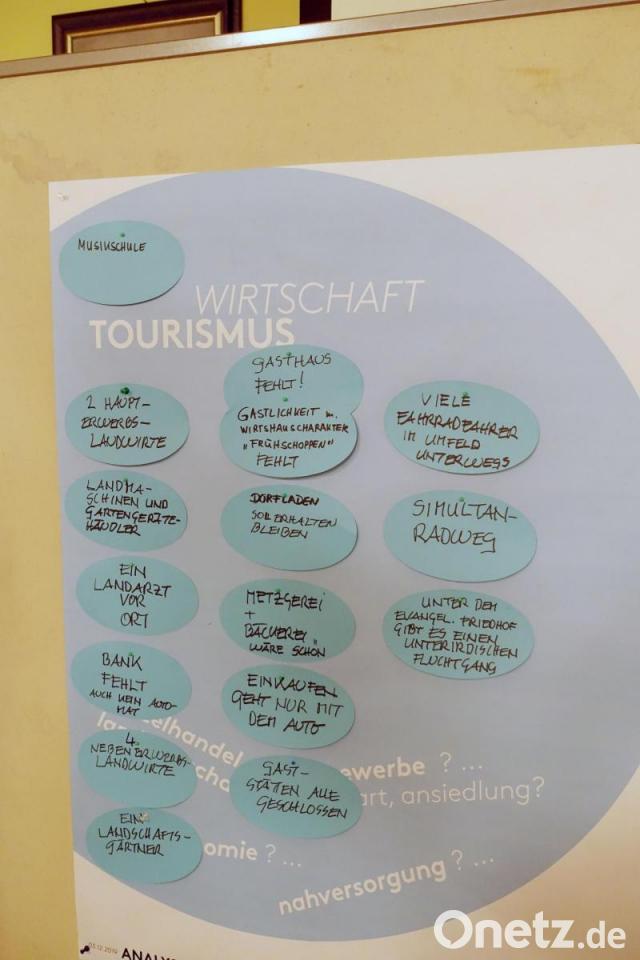 MUSIKSCHULE
WIRTSCHAFT
TOURISMUS
2 HAUPT-
ERWERBS-
LANDWIRTE
LANDMA-
SCHINEN UND
GARTENGERÄTE-
HÄNDLER
EIN
LANDARZT
VOR
ORT
BANK
FEHLT
AUCH KEIN AUTO-
MAT
4
NEBENERWERBS-
LANDWIRTE
EIN
LANDSCHAFTS-
GÄRTNER
GASTHAUS
FEHLT!
GASTLICHKEIT m.
WIRTSHAUSCHARAKTER
„FRÜHSCHOPPEN"
FEHLT
DORFLADEN
SOLL ERHALTEN
BLEIBEN
METZGEREI
+
BÄCKEREI
WÄRE SCHÖN
EINKAUFEN
GEHT NUR MIT
DEM AUTO
GAST-
STÄTEN ALLE
GESCHLOSSEN
VIELE
FAHRRADFAHRER
IM UMFELD
UNTERWEGS
SIMULTAN-
RADWEG
UNTER DEM
EVANGEL. FRIEDHOF
GIBT ES EINEN
UNTERIRDISCHEN
FLUCHTGANG
elhandel ewerbe ? ...
art, ansiedlung?
omie ? ...
nahversorgung ? ...
ANALYS
Onetz.de